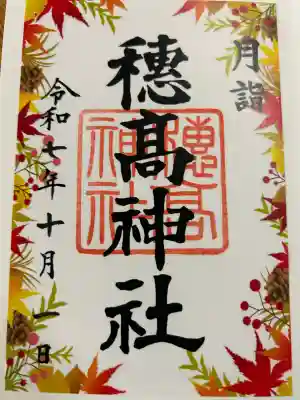 月詣
穂髙神社
穂高神社
令和七年十月一日